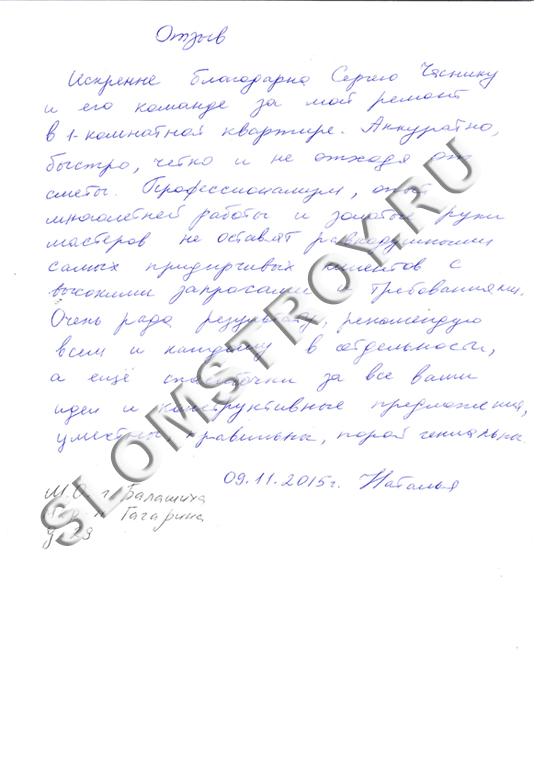 Отзыв
Искренне благодарна Сергею Чяснику
и его команде за мой ремонт
в 1-комнатной квартире. Аккуратно,
быстро, четко и не отходя от
сметы. Профессионализм, опыт
многолетней работы и золотые руки
мастеров не оставят равнодушными
самых придирчивых клиентов с
высокими запросами и требованиями.
Очень рада результату, рекомендую
всем и каждому в отдельности,
а ещё спасибочки за все ваши
идеи и конструктивные предложения,
уместны, правильны, порой гениальны
09.11.2015г. Наталья
М.О. г. Балашиха
Гагарина
SLOMSTROY.RU